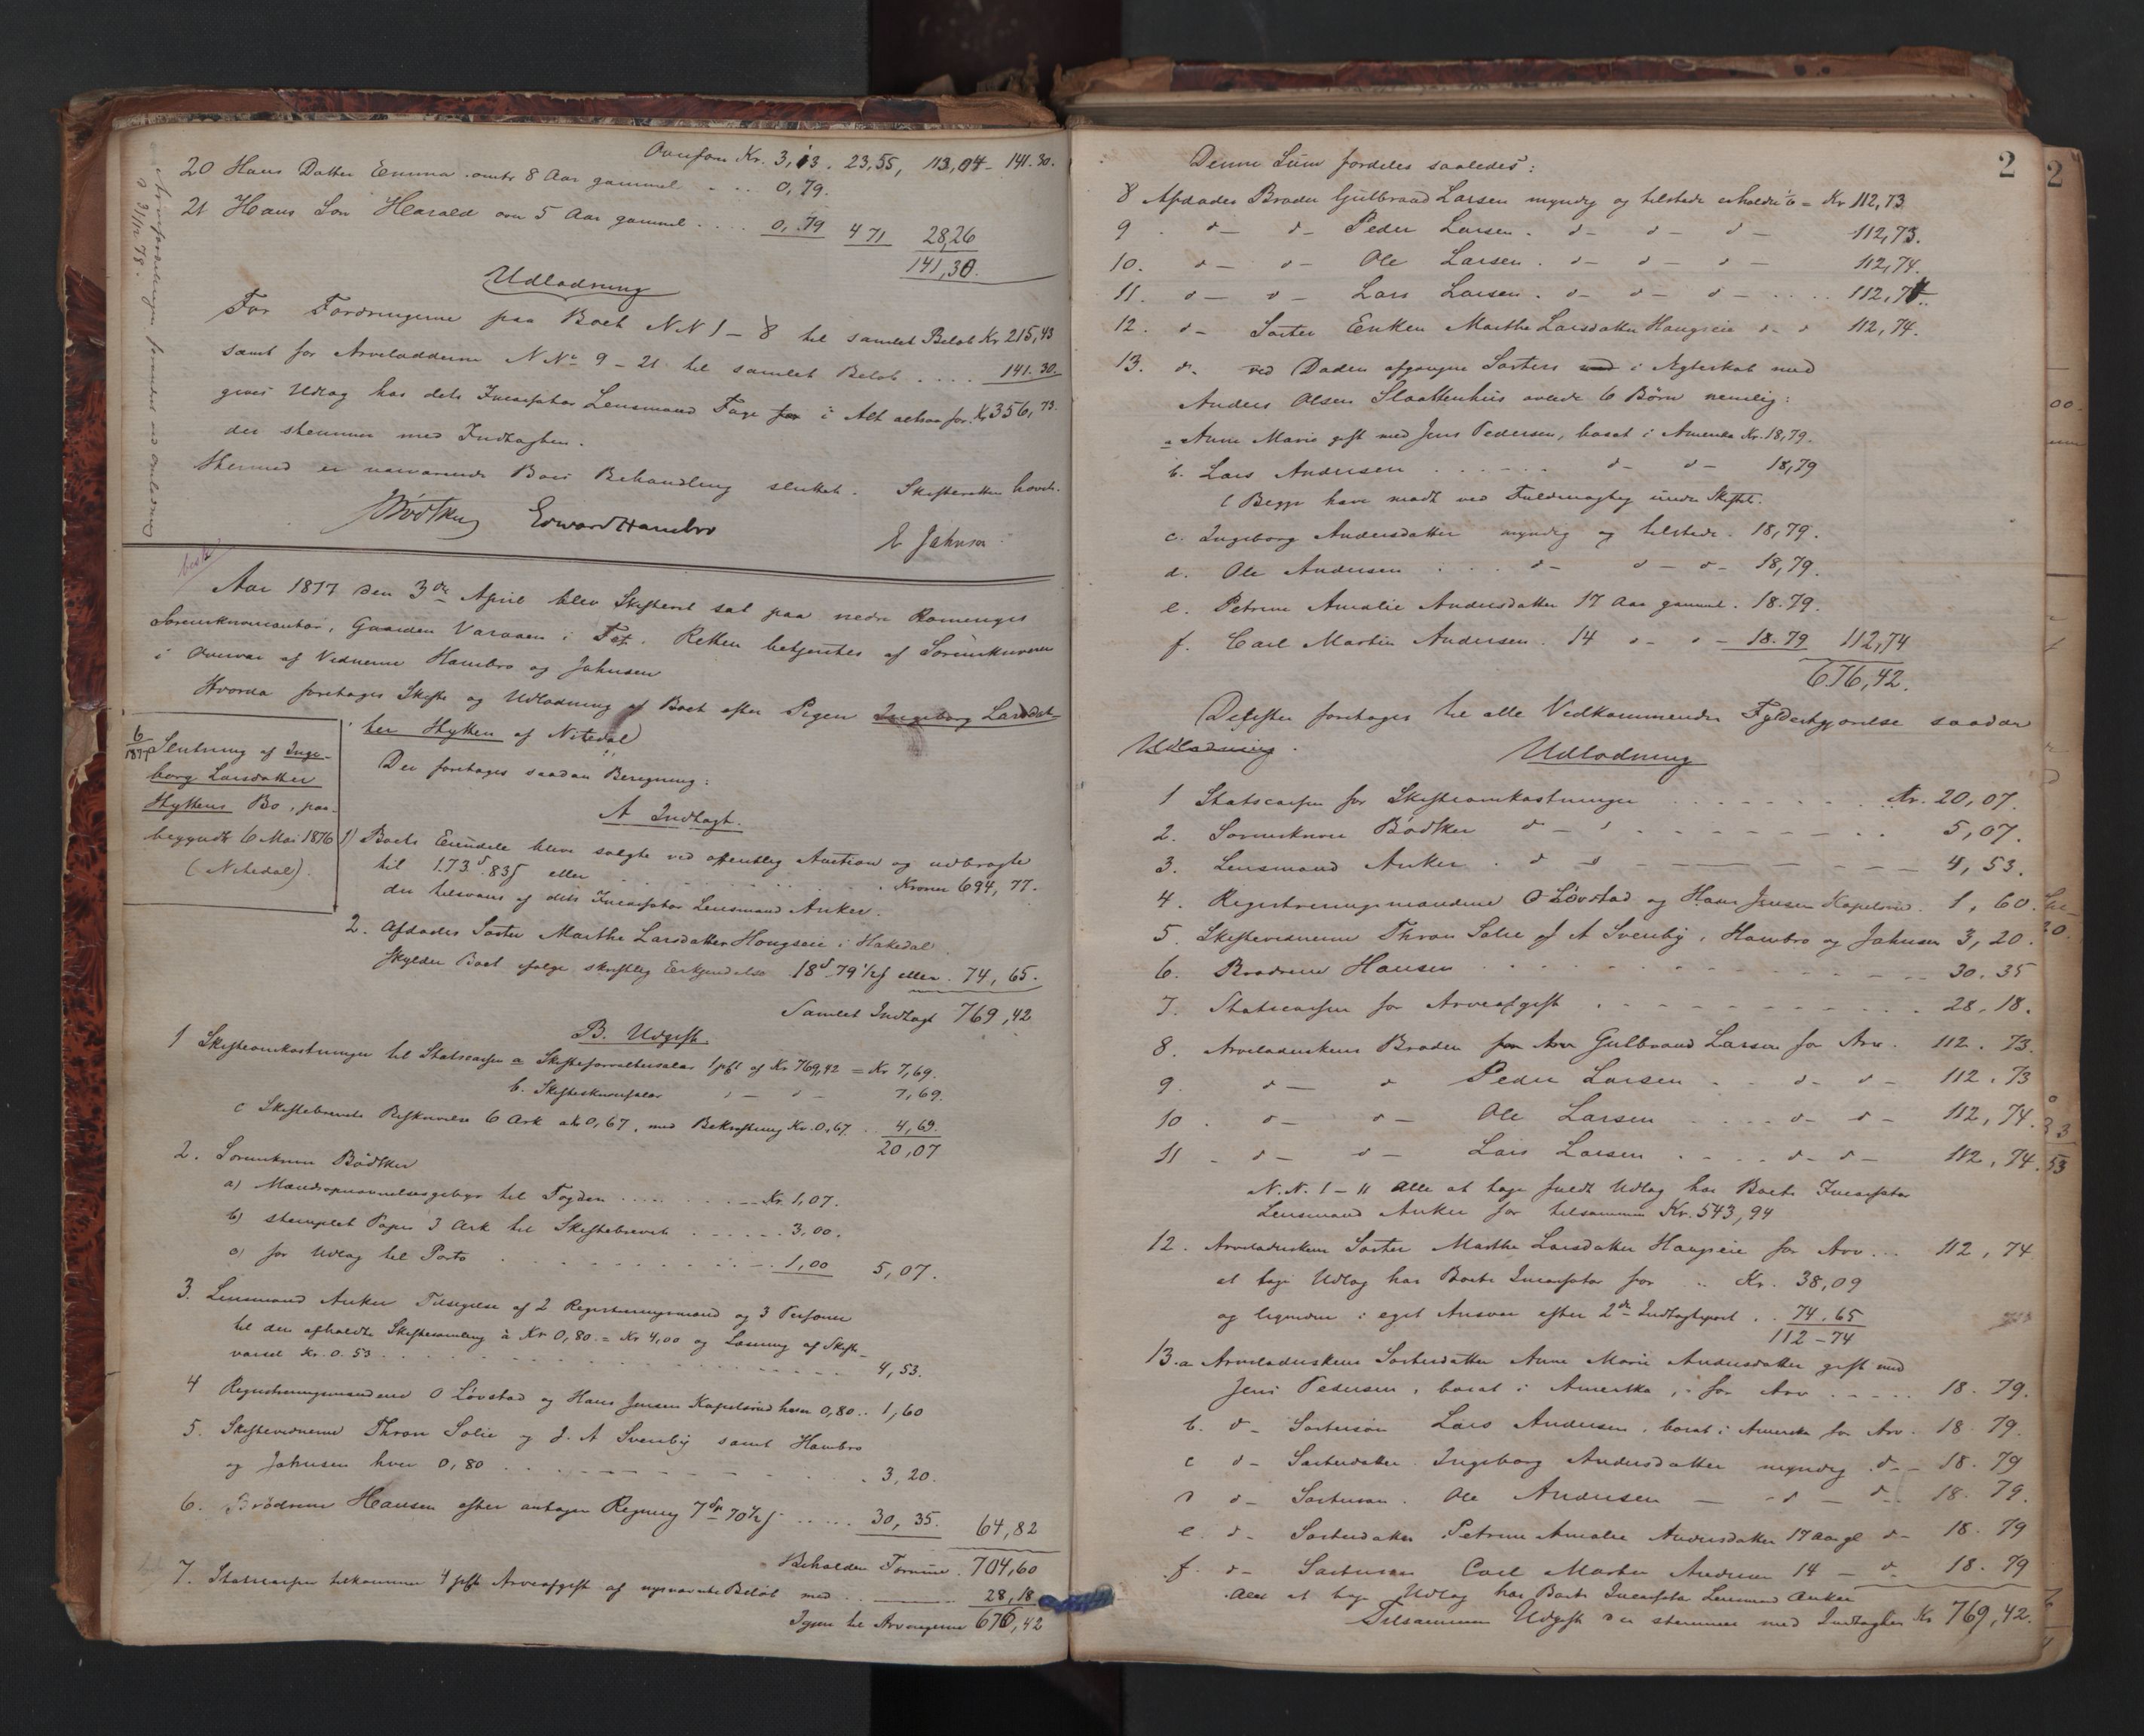 Ovenfor Kr. 3,13. 23,55, 113,04 - 141.30.
20 Hans Datter Emma omtr 8 Aar gammel . . . 0,79.
21 Hans Søn Harald om 5 Aar gammel . . . . 0,79 4 71 28,26
141,30.
Udlodning
For Fordringerne paa Boet N N 1 - 8 til samlet Beløb Kr 215,43
samt for Arvelodderne N No 9 - 21 til samlet Beløb . . . . 141.30.
gives Udlæg hos dets Incassator Lensmand Fage for i Alt altsaa for Kr 356,73.
der stemmer med Indtægten.
Hermed er nærværende Boes Behandling sluttet. Skifteretten hævet.
Bödtker Edward Hambro
E Jahnsen
Aar 1877 den 3die April blev Skifteret sat paa nedre Romeriges
Sorenskrivercontor, Gaarden Varaaen i Fet. Retten betjentes af Sorenskriveren
i Overvær af Vidnerne Hambro og Jahnsen
Hvorda foretages Skifte og Udlodning af Boet efter Pigen Ingeborg Larsdat-
ter Hytten af Nitedal
6
1877
Slutning af Inge-
borg Larsdatter
Hyttens Bo, paa-
begyndt 6 Mai 1876
(Nitedal).
Der foretages saadan Beregning:
A Indtægt.
1) Boets Eiendele bleve solgte ved offentlig Auction og udbragte
til 173 d. 83 ʃ eller . . . . . . Kroner 694,77.
der tilsvares af dets Incassator Lensmand Anker.
2. Afdødes Søster Marthe Larsdatter Haugseie i Hakedal
skylder Boet ifølge skriftlig Erkjendelse 18 d 79 1/2 ʃ eller . 74,65.
Samlet Indtægt 769,42
B. Udgift.
1 Skifteomkostninger til Statscassen a Skifteforvaltersalær 1 pCt af Kr 769,42 = Kr 7,69.
b. Skifteskriversalær - - 7,69.
c Skiftebrevets Beskrivelse 6 Ark à 0,67, med Bekræftning Kr. 0,67 . . 4,69.
20,07
2. Sorenskriver Bödtker
a) Mændsopnævnelsesgebyr til Fogden . . . . . . Kr. 1,07.
b) stemplet Papir 3 Ark til Skiftebrevet . . . . . . 3,00.
c) for Udlæg til Porto . . . . . . 1,00 5,07.
3. Lensmand Anker Tilsigelse af 2 Registreringsmænd og 3 Personer
til den afholdte Skiftesamling à Kr 0,80 = Kr 4,00 og Læsning af Skifte-
varsel Kr. 0.53 . . . . . . 4,53.
4 Registreringsmændene O Løvstad og Hans Jensen Kapelsrud hver 0,80 . . 1,60
5. Skiftevidnerne Thron Solie og J. A Svenby samt Hambro
og Jahnsen hver 0,80 . . . . . . 3,20.
6. Brödrene Hansen efter antagen Regning 7 Sp 70 1/2 ʃ . . . . . 30,35. 64,82
Beholden Formue . 704,60
7. Statscassen tilkommer 4 pCt Arveafgift af nysnævnte Beløb med . . 28,18
Igjen til Arvingerne 676,42
2
Denne Sum fordeles saaledes:
8 Afdødes Broder Gulbrand Larsen myndig og tilstede erholder 1/6 = Kr 112,73
9 . d - d - Peder Larsen . d - d - d - 112,73.
10. d - d - Ole Larsen . d - d - d - 112,74.
11. d - d - Lars Larsen . d - d - d - . . . . 112,74.
12. d - Søster Enken Marthe Larsdatter Haugseie d - d 112,74.
13. d. ved Døden afgangne Søsters med i Ægteskab med
Anders Olsen Slaattenhus avlede 6 Børn nemlig:
a Anne Marie gift med Jens Pedersen, bosat i Amerika Kr. 18,79.
b. Lars Andersen . . . . . . d - d - 18,79
(Begge have mødt ved Fuldmægtig under Skiftet.
c. Ingeborg Andersdatter myndig og tilstede . 18,79.
d. Ole Andersen . . . . d - d - d - 18,79.
e. Petrine Amalie Andersdatter 17 Aar gammel . 18.79.
f. Carl Martin Andersen . 14 d - d - 18.79 112,74
676,42.
Derefter foretages til alle Vedkommendes Fyldestgjørelse saadan
Udlodning.
Udlodning
1 Statscassen for Skifteomkostninger . . . . . . Kr. 20,07.
2. Sorenskriver Bödtker d - d . . . . . . 5,07.
3. Lensmand Anker . d - d - - - 4,53.
4. Registreringsmændene O Løvstad og Hans Jensen Kapelsrud . 1,60.
5. Skiftevidnerne Thron Solie og A Svenby, Hambro og Jahnsen 3,20.
6. Brødrene Hansen . . . . . . 30.35
7. Statscassen for Arveafgift . . . . . . 28.18.
8. Arveladerskens Broder for Arv Gulbrand Larsen for Arv . 112.73.
9. d - d Peder Larsen . . d - d - 112.73
10. d - d - Ole Larsen . . . . d - d - 112,74.
11 - d - d - Lars Larsen . . . . d - d - 112,74.
N.N. 1 - 11 Alle at tage fuldt Udlæg hos Boets Incassator
Lensmand Anker for tilsammen Kr. 543,94
12. Arveladerskens Søster Marthe Larsdatter Haugseie for Arv . . . 112,74
at tage Udlæg hos Boets Incassator for . . Kr. 38,09
og ligneder i eget Ansvar efter 2den Indtægtspost . . 74.65
112 - 74
13.a Arveladerskens Søsterdatter Anne Marie Andersdatter gift med
Jens Pedersen, bosat i Amerika, for Arv . . . . . 18.79.
b. d - Søstersøn Lars Andersen, bosat i Amerika for Arv . 18.79.
c d - Søsterdatter . Ingeborg Andersdatter myndig d - 18.79
d d - Søstersøn . Ole Andersen - d - d - 18.79.
e. d - Søsterdatter Petrine Amalie Andersdatter 17 Aar gl d - 18.79
f. d - Søstersøn Carl Martin Andersen 14 - d - 18.79
Alle at tage Udlæg hos Boets Incassator Lensmand Anker
Tilsammen Udgift der stemmer med Indtægten Kr 769,42.